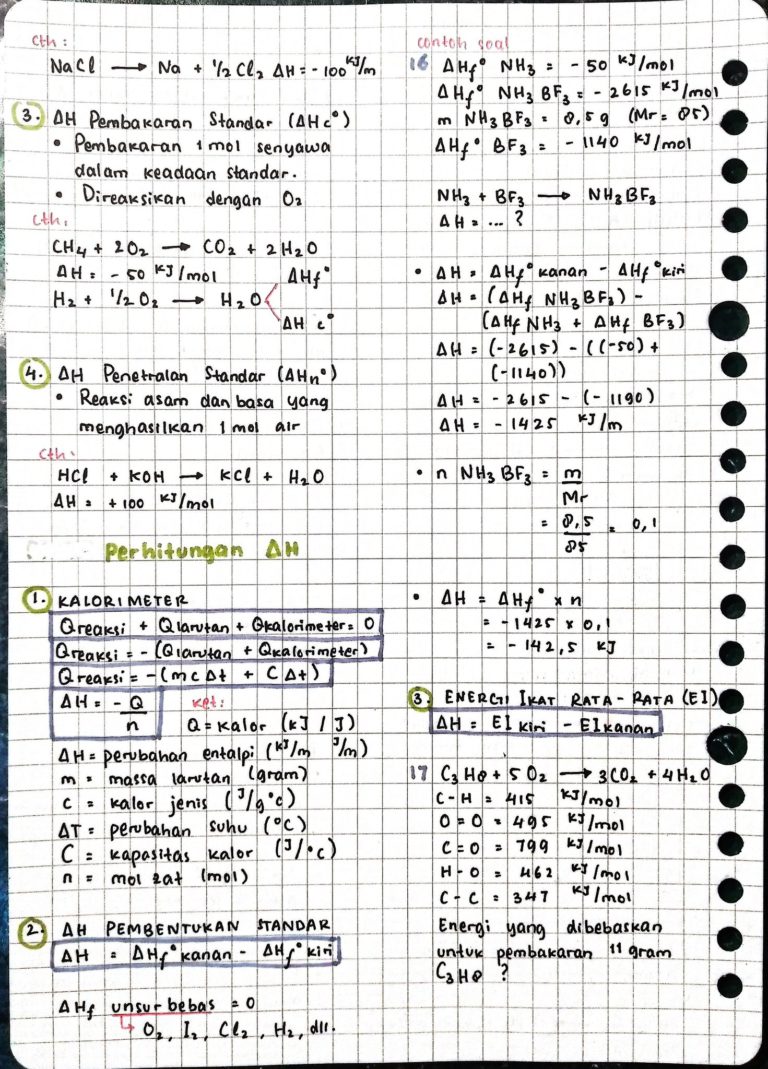 cth :
NaCl → Na + 1/2 Cl2 ΔH = - 100 kJ/m
3. ΔH Pembakaran Standar (ΔHc°)
• Pembakaran 1 mol senyawa
dalam keadaan standar.
• Direaksikan dengan O2
cth,
CH4 + 2O2 → CO2 + 2H2O
ΔH = - 50 kJ/mol
H2 + 1/2 O2 → H2O < ΔHf°
ΔH c°
4. ΔH Penetralan Standar (ΔHn°)
• Reaksi asam dan basa yang
menghasilkan 1 mol air
cth.
HCl + KOH → KCl + H2O
ΔH = +100 kJ/mol
Perhitungan ΔH
1. KALORIMETER
Qreaksi + Qlarutan + Qkalorimeter = 0
Qreaksi = -(Qlarutan + Qkalorimeter)
Qreaksi = -(mcΔt + CΔt)
ΔH = -Q/n
ket:
Q = kalor (kJ / J)
ΔH = perubahan entalpi (kJ/m J/m)
m = massa larutan (gram)
c = kalor jenis (J/g°c)
ΔT = perubahan suhu (°C)
C = kapasitas kalor (J/°c)
n = mol zat (mol)
2. ΔH PEMBENTUKAN STANDAR
ΔH = ΔHf° kanan - ΔHf° kiri
ΔHf unsur bebas = 0
↳ O2, I2, Cl2, H2, dll.
contoh soal
16 ΔHf° NH3 = - 50 kJ/mol
ΔHf° NH3 BF3 = - 2615 kJ/mol
m NH3BF3 = 8,5 g (Mr = 85)
ΔHf° BF3 = - 1140 kJ/mol
NH3 + BF3 → NH3BF3
ΔH = ... ?
• ΔH = ΔHf° kanan - ΔHf° kiri
ΔH = (ΔHf NH3BF3) -
(ΔHf NH3 + ΔHf BF3)
ΔH = (-2615) - ((-50) +
(-1140))
ΔH = - 2615 - (-1190)
ΔH = - 1425 kJ/m
• n NH3BF3 = m
Mr
= 8,5 = 0,1
85
• ΔH = ΔHf° x n
= - 1425 x 0,1
= - 142,5 kJ
3. ENERGI IKAT RATA-RATA (EI)
ΔH = EI kiri - EI kanan
17 C3H8 + 5O2 → 3CO2 + 4H2O
C-H = 415 kJ/mol
O=O = 495 kJ/mol
C=O = 799 kJ/mol
H-O = 462 kJ/mol
C-C = 347 kJ/mol
Energi yang dibebaskan
untuk pembakaran 11 gram
C3H8 ?